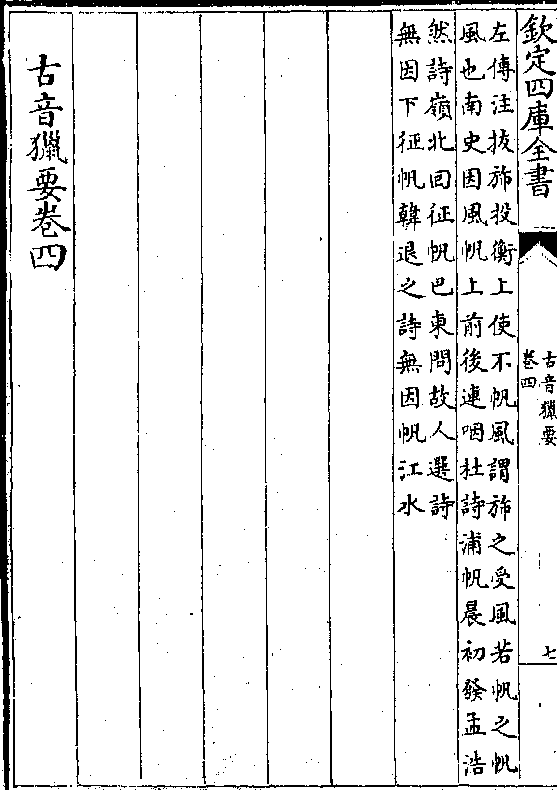 欽定四庫全書
古音獵要
卷四
七
左傳注拔斾投衡上使不帆風謂斾之受風若帆之帆
風也南史因風帆上前後連咽杜詩浦帆晨初發孟浩
然詩嶺北回征帆巴東問故人選詩
無因下征帆韓退之詩無因帆江水
古音獵要卷四